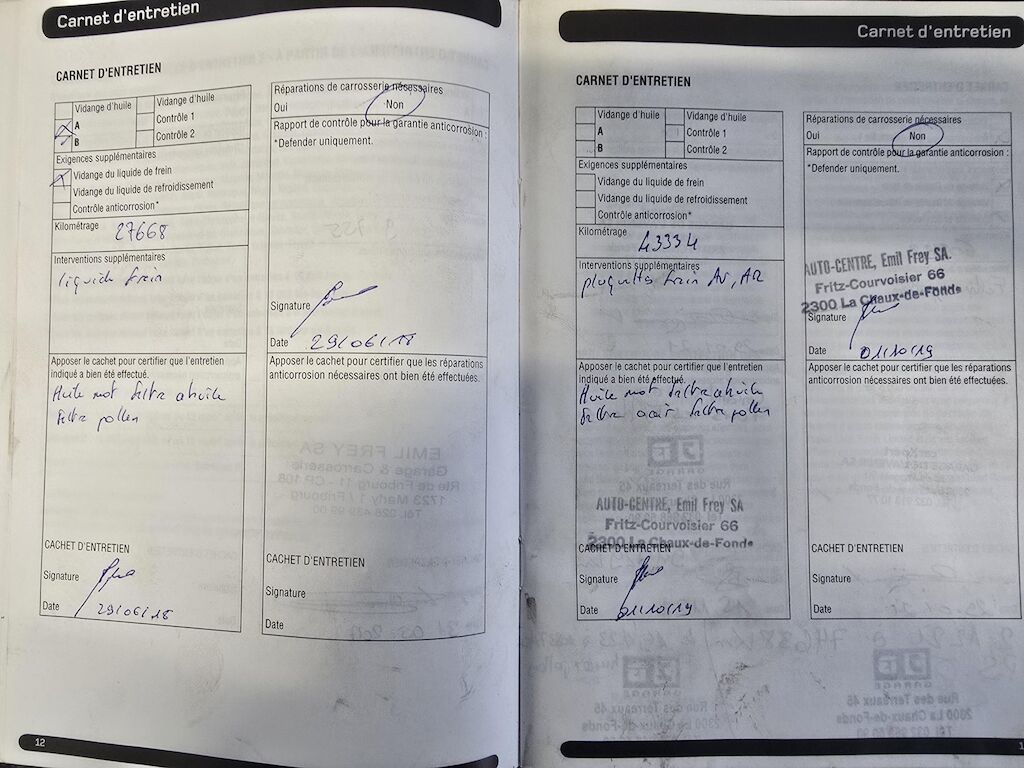 Carnet d'entretien
CARNET D'ENTRETIEN
Vidange d'huile
A
B
Vidange d'huile
Contrôle 1
Contrôle 2
Exigences supplémentaires
Vidange du liquide de frein
Vidange du liquide de refroidissement
Contrôle anticorrosion*
Kilométrage
27668
Interventions supplémentaires
liquide frein
Apposer le cachet pour certifier que l'entretien
indiqué a bien été effectué.
Huile mot filtre a huile
filtre pollen
CACHET D'ENTRETIEN
Signature
Date 29/06/18
Réparations de carrosserie nécessaires
Oui Non
Rapport de contrôle pour la garantie anticorrosion :
*Defender uniquement.
Signature
Date 29/06/18
Apposer le cachet pour certifier que les réparations
anticorrosion nécessaires ont bien été effectuées.
CACHET D'ENTRETIEN
Signature
Date
12
Carnet d'entretien
CARNET D'ENTRETIEN
Vidange d'huile
A
B
Vidange d'huile
Contrôle 1
Contrôle 2
Exigences supplémentaires
Vidange du liquide de frein
Vidange du liquide de refroidissement
Contrôle anticorrosion*
Kilométrage
43334
Interventions supplémentaires
plaquettes frein AV, AR
Apposer le cachet pour certifier que l'entretien
indiqué a bien été effectué.
Huile mot filtre a huile
filtre air filtre pollen
AUTO-CENTRE, Emil Frey SA
Fritz-Courvoisier 66
2300 La Chaux-de-Fonds
CACHET D'ENTRETIEN
Signature
Date 01/10/19
Réparations de carrosserie nécessaires
Oui Non
Rapport de contrôle pour la garantie anticorrosion :
*Defender uniquement.
AUTO-CENTRE, Emil Frey SA.
Fritz-Courvoisier 66
2300 La Chaux-de-Fonds
Signature
Date 01/10/19
Apposer le cachet pour certifier que les réparations
anticorrosion nécessaires ont bien été effectuées.
CACHET D'ENTRETIEN
Signature
Date